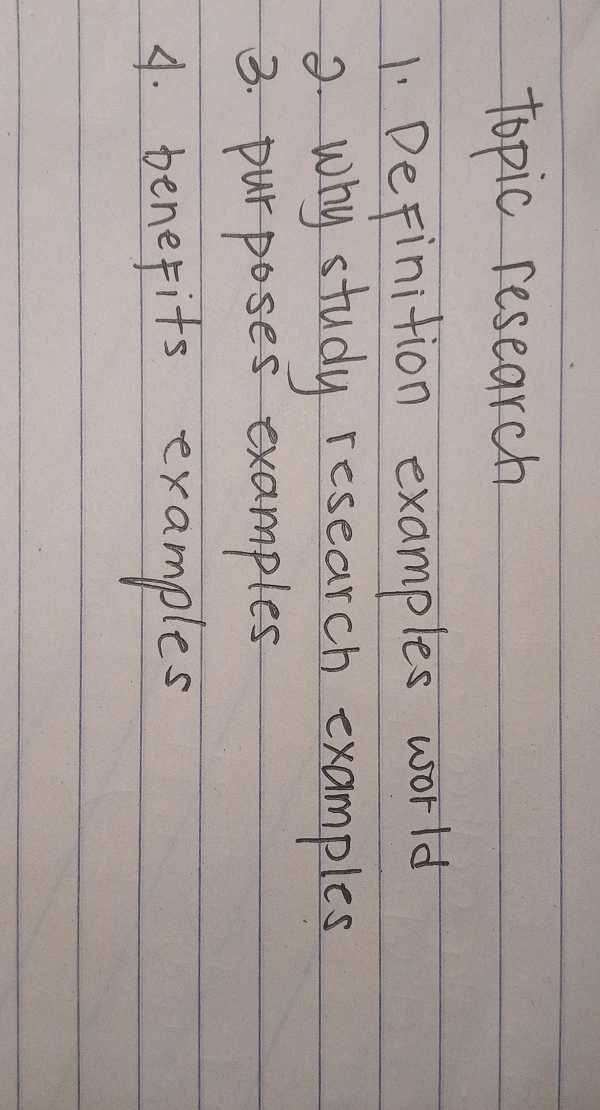 Topic research
1. Definition examples world
2. why study research examples
3. purposes examples
4. benefits examples